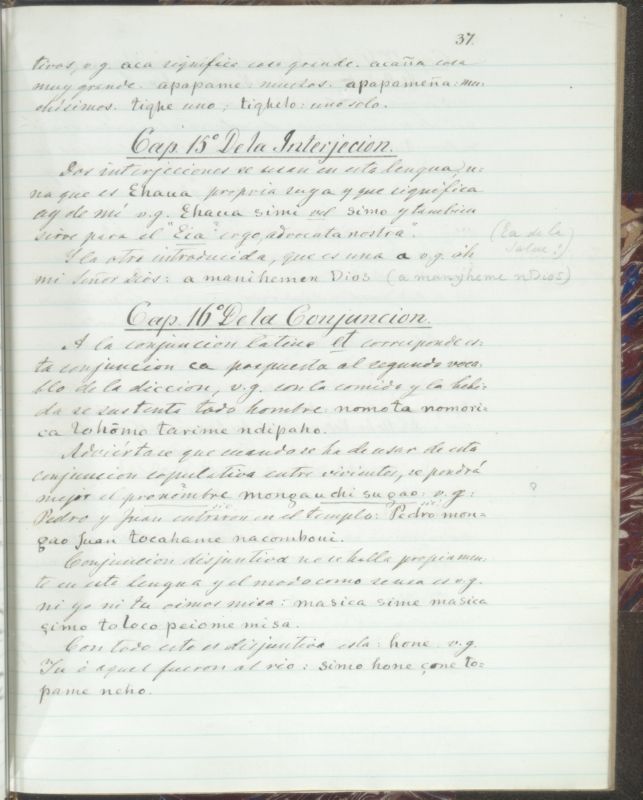 37.
tivos, v.g. aca significa cosa grande. acaña cosa
muy grande. apapame: muchos. apapameña: mu-
chísimos. tighe uno: tighelo: uno solo.
Cap. 15º De la Interjecion.
Dos interjecciones se usan en esta lengua, u-
na que es Ehaua propria suya y que significa
ay de mí v.g. Ehaua simi vel simo y tambien
sirve para el "Eia" ergo, advocata nostra".
(Ea de la Salve!)
Y la otra introducida, que es una a v.g. ah
mi Señor Dios: a manihemen Dios (a manijheme nDios)
Cap. 16º De la Conjuncion.
A la conjuncion latina et corresponde es-
ta conjuncion ca pospuesta al segundo voca-
blo de la diccion, v.g. con la comida y la bebi-
da se sustenta todo hombre: nomota nomori-
ca Lohōmo tarime ndipaho.
Adviértase que cuando se ha de usar de esta
conjuncion copulativa entre vivientes, se pondrá
mejor el pronombre mongauchi sugao: v.g:
?
Pedro y Juan entraron en el templo: Pedro mon-
gao Juan tocahame nacomboni.
Conjuncion disjuntiva no se halla propiamen-
te en esta lengua y el modo como se usa es v.g.
ni yo ni tu oimos misa: masica sime masica
simo toloco peiome misa.
Con todo esto es disjuntiva esta: hone. v.g.
Tu ó aquel fueron al rio: simo hone çone to-
pame neho.